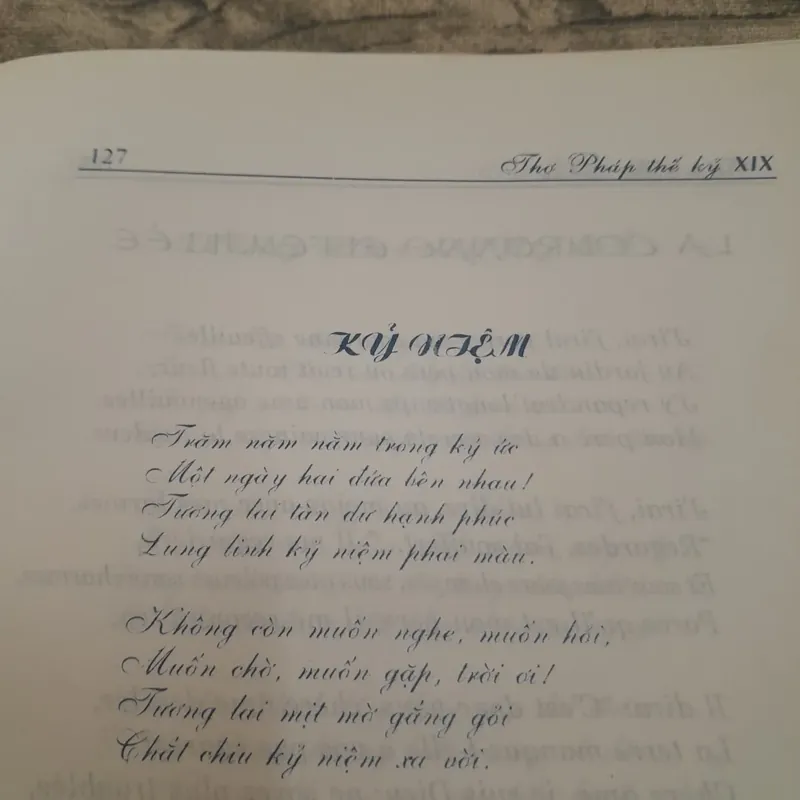 127 Thơ Pháp thế kỷ XIX
KỶ NIỆM
Trăm năm nằm trong ký ức
Một ngày hai đứa bên nhau!
Tương lai tàn dư hạnh phúc
Lung linh kỷ niệm phai màu.
Không còn muốn nghe, muốn hỏi,
Muốn chờ, muốn gặp, trời ơi!
Tương lai mịt mờ gắng gỏi
Chắt chiu kỷ niệm xa vời.